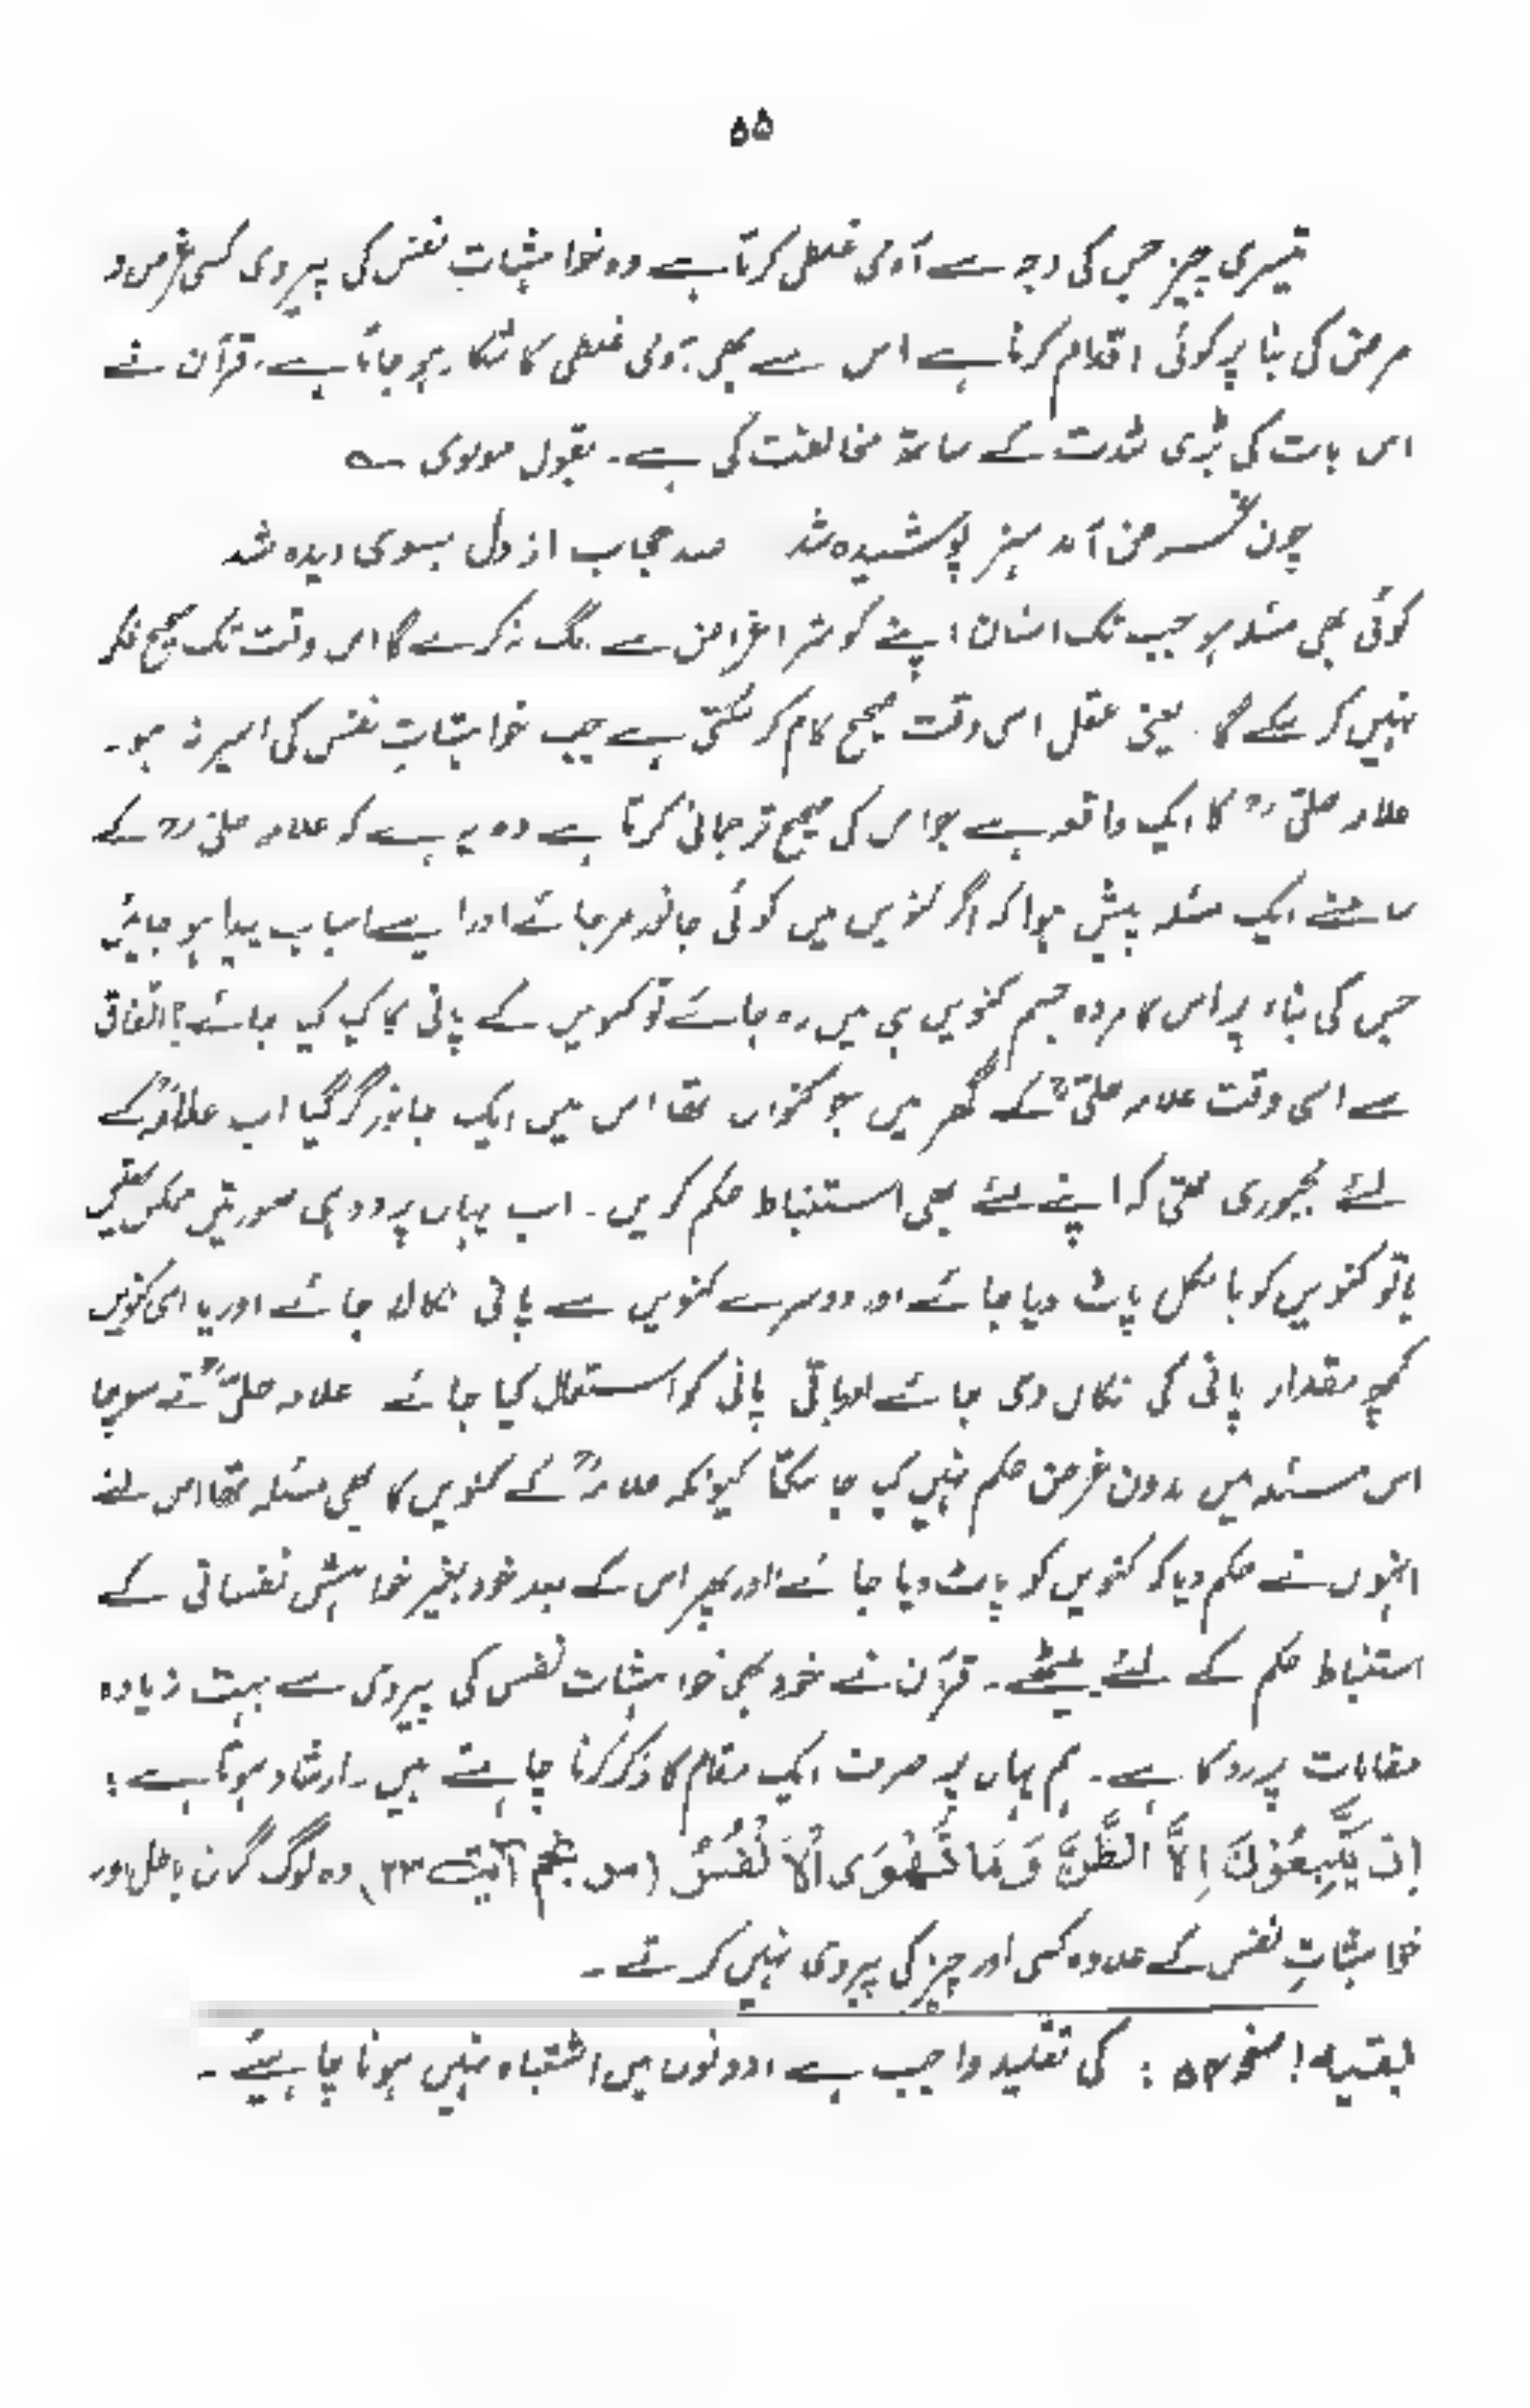 ۵۵
تیسری چیز جس کی وجہ سے آدمی غلطی کرتا ہے وہ خواہشاتِ نفس کی پیروی کسی غرض و
مرض کی بنا پر کوئی اقدام کرنا ہے اس سے بھی آدمی غلطی کا شکار ہو جاتا ہے۔ قرآن نے
اس بات کی بڑی شدت کے ساتھ مخالفت کی ہے۔ بقول مولوی ؎
چون غرض آمد ہنر پوشیدہ شد صد حجاب از دل بسوی دیدہ شد
کوئی بھی مسئلہ ہو جب تک انسان اپنے کو شر اغراض سے الگ نہ کرے گا اس وقت تک صحیح فکر
نہیں کر سکے گا۔ یعنی عقل اسی وقت صحیح کام کر سکتی ہے جب خواہشاتِ نفس کی اسیر نہ ہو۔
علامہ حلّی رح کا ایک واقعہ ہے جو اس کی صحیح ترجمانی کرتا ہے وہ یہ ہے کہ علامہ حلّی رح کے
سامنے ایک مسئلہ پیش ہوا کہ اگر کنویں میں کوئی جانور مر جائے اور ایسے اسباب پیدا ہو جائیں
جس کی بناء پر اس کا مردہ جسم کنویں ہی میں رہ جائے تو کنویں کے پانی کا کیا کیا جائے؟ اتفاق
سے اسی وقت علامہ حلّیؒ کے گھر میں جو کنواں تھا اس میں ایک جانور گر گیا اب علامہؒ کے
لئے مجبوری تھی کہ اپنے لئے بھی استنباط حکم کریں۔ اب یہاں پر دو ہی صورتیں ممکن تھیں
یا تو کنویں کو بالکل پاٹ دیا جائے اور دوسرے کنویں سے پانی نکالا جائے اور یا اسی کنویں
کچھ مقدار پانی کی نکال دی جائے اور باقی پانی کو استعمال کیا جائے علامہ حلّیؒ نے سوچا
اس مسئلہ میں بدون غرض حکم نہیں کیا جا سکتا کیونکہ علامہؒ کے کنویں کا بھی مسئلہ تھا اس لئے
انہوں نے حکم دیا کہ کنویں کو پاٹ دیا جائے اور پھر اس کے بعد خود بغیر خواہش نفسانی کے
استنباط حکم کے لئے بیٹھے۔ قرآن نے خود بھی خواہشات نفس کی پیروی سے بہت زیادہ
مقامات پر روکا ہے۔ ہم یہاں پر صرف ایک مقام کا ذکر کرنا چاہتے ہیں۔ ارشاد ہوتا ہے:
اِن یَّتَّبِعُوْنَ اِلَّا الظَّنَّ وَ مَا تَہْوَی الْاَنْفُسُ (س نجم آیت ۲۳) وہ لوگ گمان باطل اور
خواہشاتِ نفس کے علاوہ کسی اور چیز کی پیروی نہیں کرتے۔
بقیہ صفحہ ۵۴ : کی تقلید واجب ہے اور دونوں میں اشتباہ نہیں ہونا چاہیئے۔